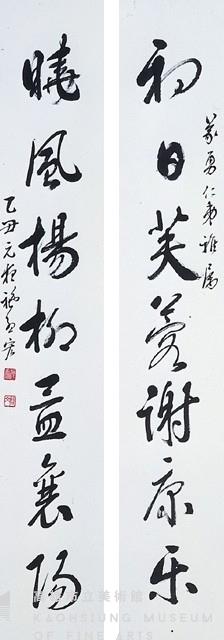 初日芙蓉謝康樂
義勇仁弟雅属
曉風楊柳孟襄陽
乙丑元
高雄市立美術館
KAOHSIUNG MUSEUM
OF FINE ARTS